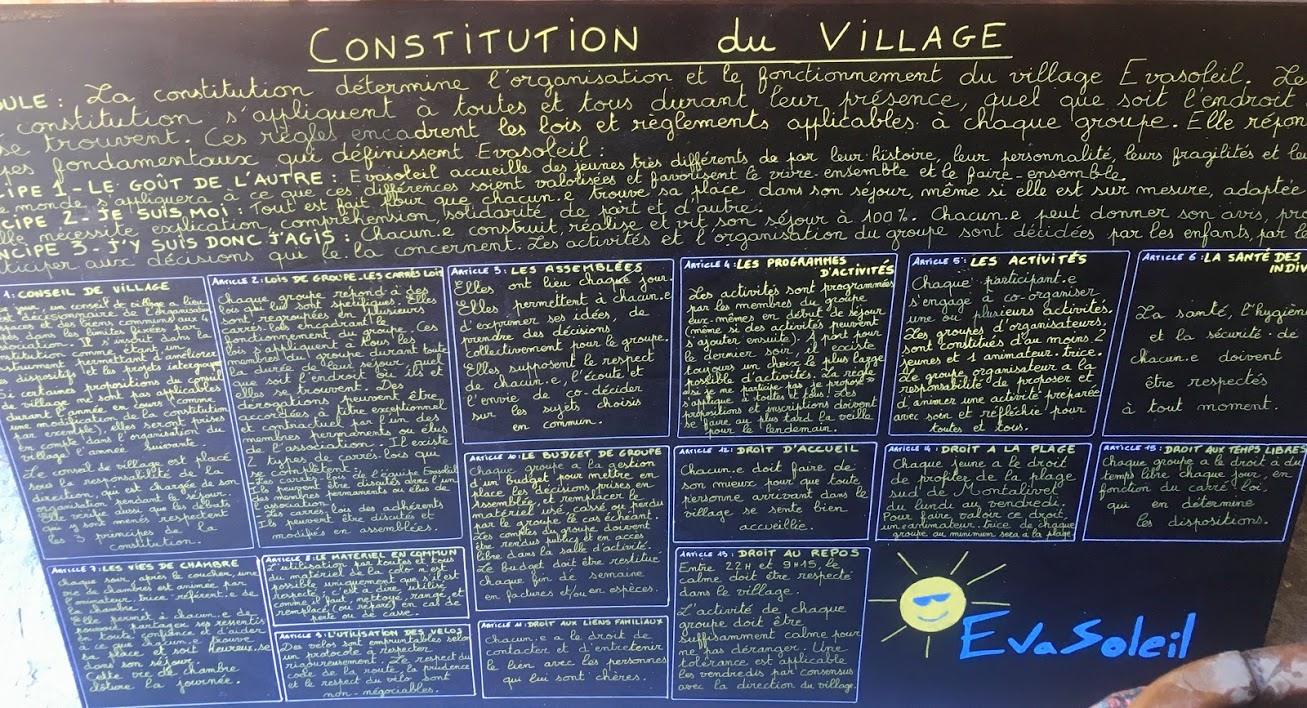 CONSTITUTION du VILLAGE
La constitution détermine l'organisation et le fonctionnement du village Evasoleil.
constitution s'appliquent à toutes et tous durant leur présence, quel que soit l'endroit
se trouvent. Ces règles encadrent les lois et règlements applicables à chaque groupe. Elle
fondamentaux qui définissent Evasoleil :
1 - LE GOÛT DE L'AUTRE : Evasoleil accueille des jeunes très différents de par leur histoire, leur personnalité, leurs fragilités et
monde s'appliquera à ce que ces différences soient valorisées et favorisent le vivre-ensemble et le faire-ensemble.
2 - JE SUIS MOI : Tout est fait pour que chacun.e trouve sa place dans son séjour, même si elle est sur mesure, adaptée
nécessite explication, compréhension, solidarité de part et d'autre.
3 - J'Y SUIS DONC J'AGIS : Chacun.e construit, réalise et vit son séjour à 100%. Chacun.e peut donner son avis,
aux décisions que le.la concernent. Les activités et l'organisation du groupe sont décidées par les enfants, par
1 : CONSEIL DE VILLAGE
un conseil de village a lieu
de l'organisation
et des biens communs aux
dans les limites posées par
Il s'inscrit dans la
comme étant un
permettant d'améliorer
dispositifs et les projets
Si certaines propositions du conseil
de village ne sont pas applicables
durant l'année en cours (comme
une modification de la constitution
par exemple), elles seront prises
en compte dans l'organisation du
village l'année suivante.
Le conseil de village est placé
sous la responsabilité de la
direction, qui est chargée de son
organisation pendant le séjour.
Elle veille aussi que les débats
y sont menés respectent
les 3 principes de la
constitution.
ARTICLE 2 : LOIS DE GROUPE - LES CARRÉS LOIS
Chaque groupe répond à des
lois qui lui sont spécifiques. Elles
sont regroupées en plusieurs
carrés-lois encadrant le
fonctionnement du groupe. Ces
lois s'appliquent à tous les
membres du groupe durant toute
la durée de leur séjour, quel
que soit l'endroit où ils et
elles se trouvent. Des
dérogations peuvent être
accordées à titre exceptionnel
et contractuel par l'un des
membres permanents ou élus
de l'association. Il existe
2 types de carrés-lois qui
se complètent :
- Les carrés-lois de l'équipe Evasoleil
Ils peuvent être discutés avec l'un
des membres permanents ou élus de
l'association.
- Les carrés-lois des adhérents
Ils peuvent être discutés et
modifiés en assemblées.
ARTICLE 3 : LES ASSEMBLÉES
Elles ont lieu chaque jour.
Elles permettent à chacun.e
d'exprimer ses idées, de
prendre des décisions
collectivement pour le groupe.
Elles supposent le respect
de chacun.e, l'écoute et
l'envie de co-décider
sur les sujets choisis
en commun.
ARTICLE 4 : LES PROGRAMMES
D'ACTIVITÉS
Les activités sont programmées
par les membres du groupe
eux-mêmes en début de séjour
(même si des activités peuvent
s'ajouter ensuite). À part pour
le dernier soir, il existe
toujours un choix le plus large
possible d'activités. La règle
« si je ne participe pas, je propose »
s'applique à toutes et tous. Les
propositions et inscriptions doivent
se faire au plus tard la veille
pour le lendemain.
ARTICLE 5 : LES ACTIVITÉS
Chaque participant.e
s'engage à co-organiser
une ou plusieurs activités.
Les groupes d'organisateurs
sont constitués d'au moins 2
jeunes et 1 animateur.trice.
Le groupe organisateur a la
responsabilité de proposer et
d'animer une activité préparée
avec soin et réfléchie pour
toutes et tous.
ARTICLE 6 : LA SANTÉ DES
La santé, l'hygiène
et la sécurité de
chacun.e doivent
être respectés
à tout moment.
ARTICLE 10 : LE BUDGET DE GROUPE
Chaque groupe a la gestion
d'un budget pour mettre en
place les décisions prises en
Assemblée, remplacer le
matériel usé, cassé ou perdu
par le groupe le cas échéant.
Les comptes du groupe doivent
être rendus publics et en accès
libre dans la salle d'activité.
Le budget doit être restitué
chaque fin de semaine
en factures et/ou en espèces.
ARTICLE 12 : DROIT D'ACCUEIL
Chacun.e doit faire de
son mieux pour que toute
personne arrivant dans le
village se sente bien
accueillie.
DROIT A LA PLAGE
Chaque jeune a le droit
de profiter de la plage
sud de Montalivet
du lundi au vendredi.
Pour faire valoir ce droit,
un animateur.trice de chaque
groupe au minimum sera à la plage
ARTICLE 15 : DROIT AUX TEMPS LIBRES
Chaque groupe a le droit à du
temps libre chaque jour, en
fonction du carré loi,
qui en détermine
les dispositions.
ARTICLE 7 : LES VIES DE CHAMBRE
Chaque soir, après le coucher, une
vie de chambres est animée par
l'animateur.trice référent.e de
la chambre.
Elle permet à chacun.e de
pouvoir partager ses ressentis
en toute confiance et d'aider
à ce que chacun.e trouve
sa place et soit heureux.se
dans son séjour.
Cette vie de chambre
clôture la journée.
ARTICLE 8 : LE MATÉRIEL EN COMMUN
L'utilisation par toutes et tous
du matériel de la colo n'est
possible uniquement que s'il est
respecté ; c'est à dire, utilisé
comme il faut, nettoyé, rangé, et
remplacé (ou réparé) en cas de
perte ou de casse.
ARTICLE 9 : L'UTILISATION DES VÉLOS
Des vélos sont empruntables selon
un protocole à respecter
rigoureusement. Le respect du
code de la route, la prudence
et le respect du vélo sont
non-négociables.
ARTICLE 11 : DROIT AUX LIENS FAMILIAUX
Chacun.e a le droit de
contacter et d'entretenir
le lien avec les personnes
qui lui sont chères.
ARTICLE 13 : DROIT AU REPOS
Entre 22H et 9H15, le
calme doit être respecté
dans le village.
L'activité de chaque
groupe doit être
suffisamment calme pour
ne pas déranger. Une
tolérance est applicable
les vendredis par consensus
avec la direction du village.
EvaSoleil